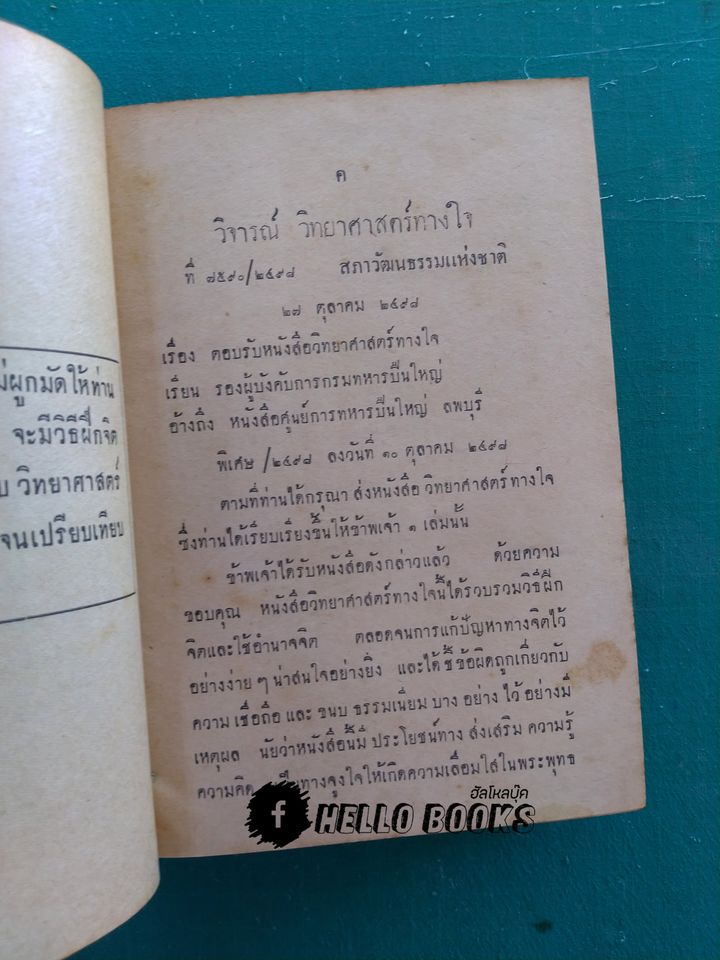 ไม่ผูกมัดให้ท่าน
จะมีวิธีฝึกจิต
วิทยาศาสตร์
จนเปรียบเทียบ
ค
วิจารณ์ วิทยาศาสตร์ทางใจ
ที่ ๗๕๙๐/๒๔๙๘ สภาวัฒนธรรมแห่งชาติ
๒๗ ตุลาคม ๒๔๙๘
เรื่อง ตอบรับหนังสือวิทยาศาสตร์ทางใจ
เรียน รองผู้บังคับการกรมทหารปืนใหญ่
อ้างถึง หนังสือศูนย์การทหารปืนใหญ่ ลพบุรี
พิเศษ /๒๔๙๘ ลงวันที่ ๑๐ ตุลาคม ๒๔๙๘
ตามที่ท่านได้กรุณา ส่งหนังสือ วิทยาศาสตร์ทางใจ
ซึ่งท่านได้เรียบเรียงขึ้นให้ข้าพเจ้า ๑ เล่มนั้น
ข้าพเจ้าได้รับหนังสือดังกล่าวแล้ว ด้วยความ
ขอบคุณ หนังสือวิทยาศาสตร์ทางใจนี้ได้รวบรวมวิธีฝึก
จิตและใช้อำนาจจิต ตลอดจนการแก้ปัญหาทางจิตไว้
อย่างง่าย ๆ น่าสนใจอย่างยิ่ง และได้ ชี้ ข้อผิดถูกเกี่ยวกับ
ความ เชื่อถือ และ ขนบ ธรรมเนียม บาง อย่าง ไว้ อย่างมี
เหตุผล นับว่าหนังสือนี้มี ประโยชน์ทาง ส่งเสริม ความรู้
ความคิด ทางจูงใจให้เกิดความเลื่อมใสในพระพุทธ
ฮัลโหลบุ๊ค
f HELLO BOOKS